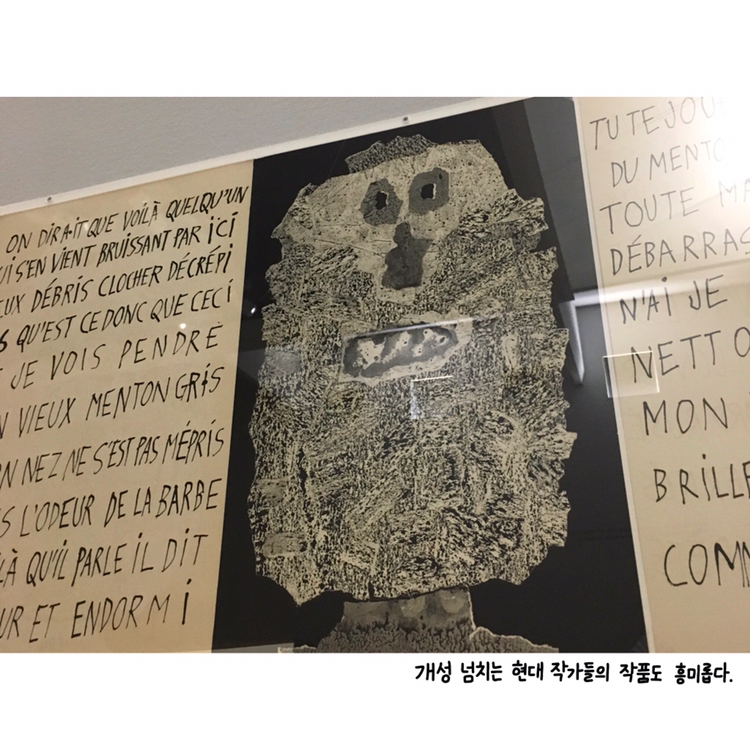 ON DIRAIT QUE VOILÀ QUELQU'UN
S'EN VIENT BRUISSANT PAR ICI
DÉBRIS CLOCHER DÉCRÉPI
QU'EST CE DONC QUE CECI
JE VOIS PENDRE
VIEUX MENTON GRIS
NEZ NE S'EST PAS MÉPRIS
L'ODEUR DE LA BARBE
QU'IL PARLE IL DIT
ET ENDORMI
TU TE
DU
TOUTE
N'AI JE
MON
개성 넘치는 현대 작가들의 작품도 흥미롭다.